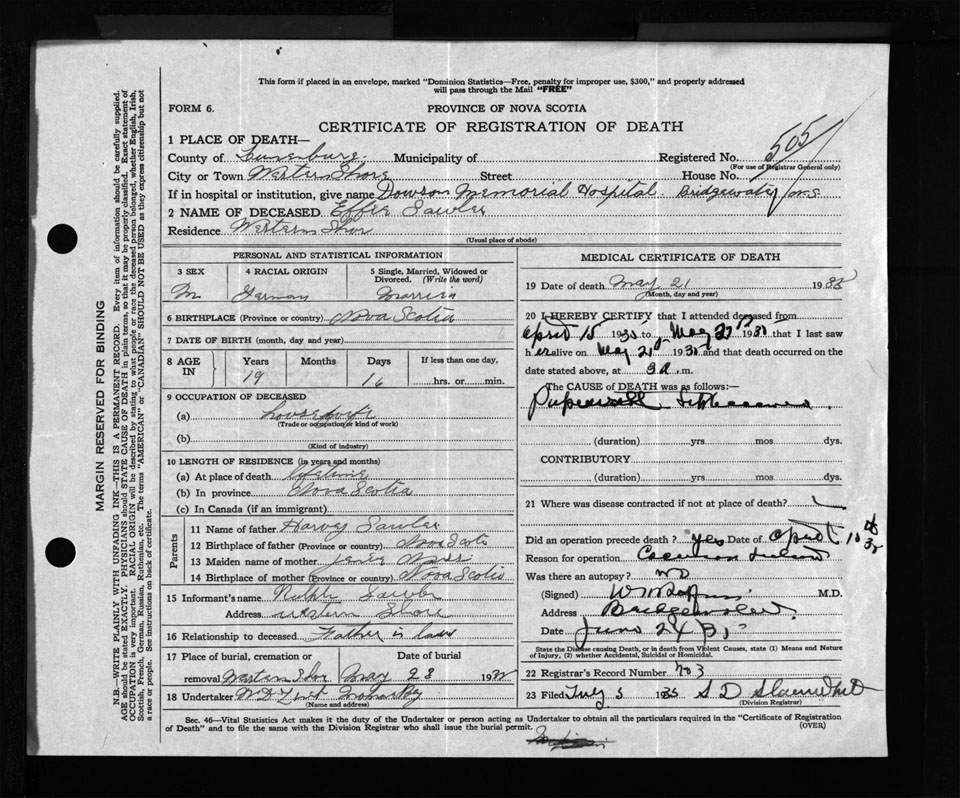 This form if placed in an envelope, marked "Dominion Statistics—Free, penalty for improper use, $300," and properly addressed
will pass through the Mail "FREE"
FORM 6.
PROVINCE OF NOVA SCOTIA
CERTIFICATE OF REGISTRATION OF DEATH
505
1 PLACE OF DEATH—
County of Lunenburg Municipality of Registered No.
(For use of Registrar General only)
City or Town Western Shore Street House No.
If in hospital or institution, give name Dawson Memorial Hospital Bridgewater N.S.
2 NAME OF DECEASED Effie Sawler
Residence Western Shor
(Usual place of abode)
PERSONAL AND STATISTICAL INFORMATION
3 SEX 4 RACIAL ORIGIN 5 Single, Married, Widowed or Divorced. (Write the word)
German Married
6 BIRTHPLACE (Province or country) Nova Scotia
7 DATE OF BIRTH (month, day and year)
8 AGE IN Years Months Days If less than one day,
19 16 hrs. or min.
9 OCCUPATION OF DECEASED
(a) housewife
(Trade or occupation or kind of work)
(b)
(Kind of industry)
10 LENGTH OF RESIDENCE (in years and months)
(a) At place of death lifetime
(b) In province Nova Scotia
(c) In Canada (if an immigrant)
Parents
11 Name of father Harvey Sawler
12 Birthplace of father (Province or country) Nova Scotia
13 Maiden name of mother
14 Birthplace of mother (Province or country) Nova Scotia
15 Informant's name Sawler
Address Western Shore
16 Relationship to deceased Father in law
17 Place of burial, cremation or removal Western Shor Date of burial May 23 193
18 Undertaker
(Name and address)
MEDICAL CERTIFICATE OF DEATH
19 Date of death May 21 193
(Month, day and year)
20 I HEREBY CERTIFY that I attended deceased from
April 15 193 to May 193 that I last saw
h er alive on May 21 193 and that death occurred on the
date stated above, at 3 a.m.
The CAUSE of DEATH was as follows:—
(duration) yrs mos dys.
CONTRIBUTORY
(duration) yrs mos dys.
21 Where was disease contracted if not at place of death?
Did an operation precede death? yes Date of April 15
Reason for operation
Was there an autopsy? no
(Signed) M.D.
Address Bridgewater
Date June 24
State the Disease causing Death, or in death from Violent Causes, state (1) Means and Nature
of Injury, (2) whether Accidental, Suicidal or Homicidal.
22 Registrar's Record Number No 3
23 Filed 193
(Division Registrar)
Sec. 46—Vital Statistics Act makes it the duty of the Undertaker or person acting as Undertaker to obtain all the particulars required in the "Certificate of Registration
of Death" and to file the same with the Division Registrar who shall issue the burial permit. (OVER)
MARGIN RESERVED FOR BINDING
N.B.—WRITE PLAINLY WITH UNFADING INK—THIS IS A PERMANENT RECORD. Every item of information should be carefully supplied.
AGE should be stated EXACTLY. PHYSICIANS should STATE CAUSE OF DEATH in plain terms, so that it may be properly classified. Exact statement of
OCCUPATION is very important. RACIAL ORIGIN will be described by stating to what people or race the deceased person belonged, whether English, Irish,
Scottish, French, German, Russian, Ruthenian, etc. The terms "AMERICAN" or "CANADIAN" SHOULD NOT BE USED as they express citizenship but not
a race or people. See instructions on back of certificate.